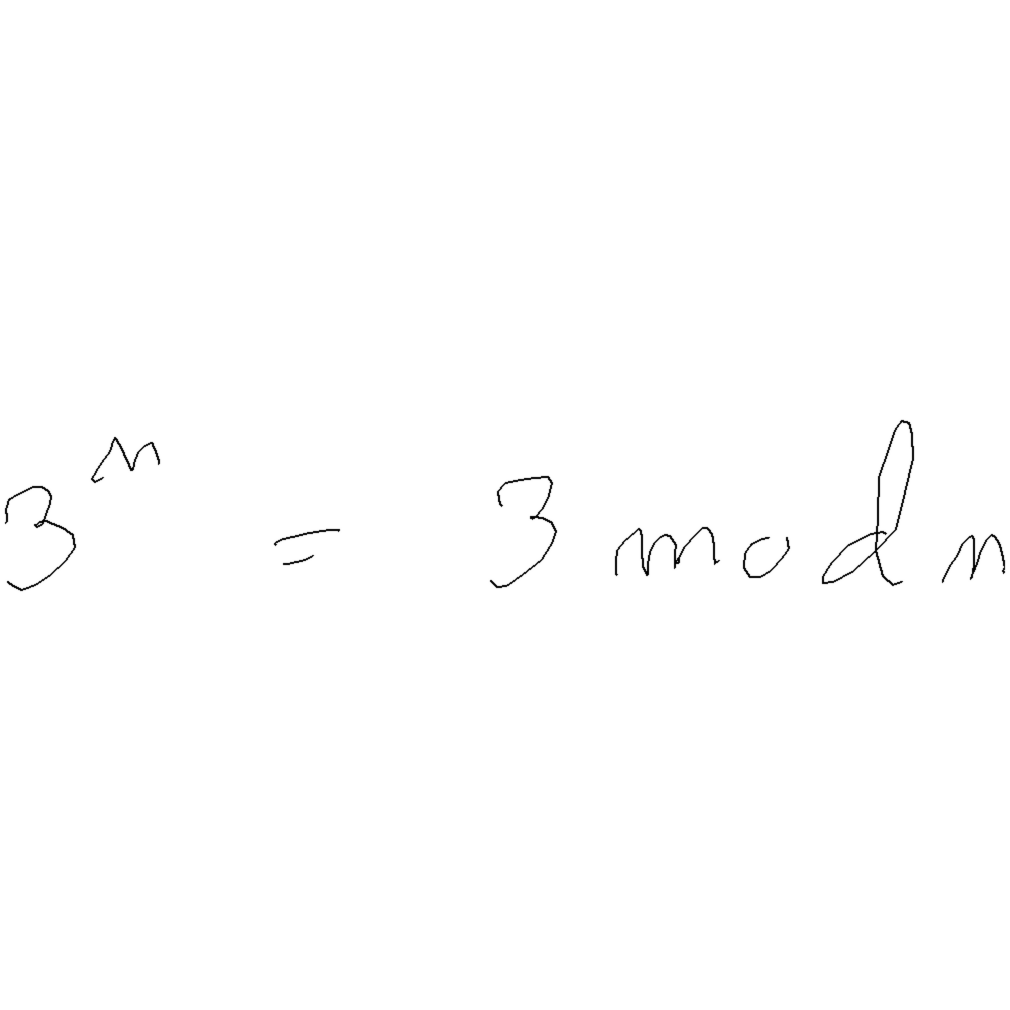 3ⁿ = 3 mod n